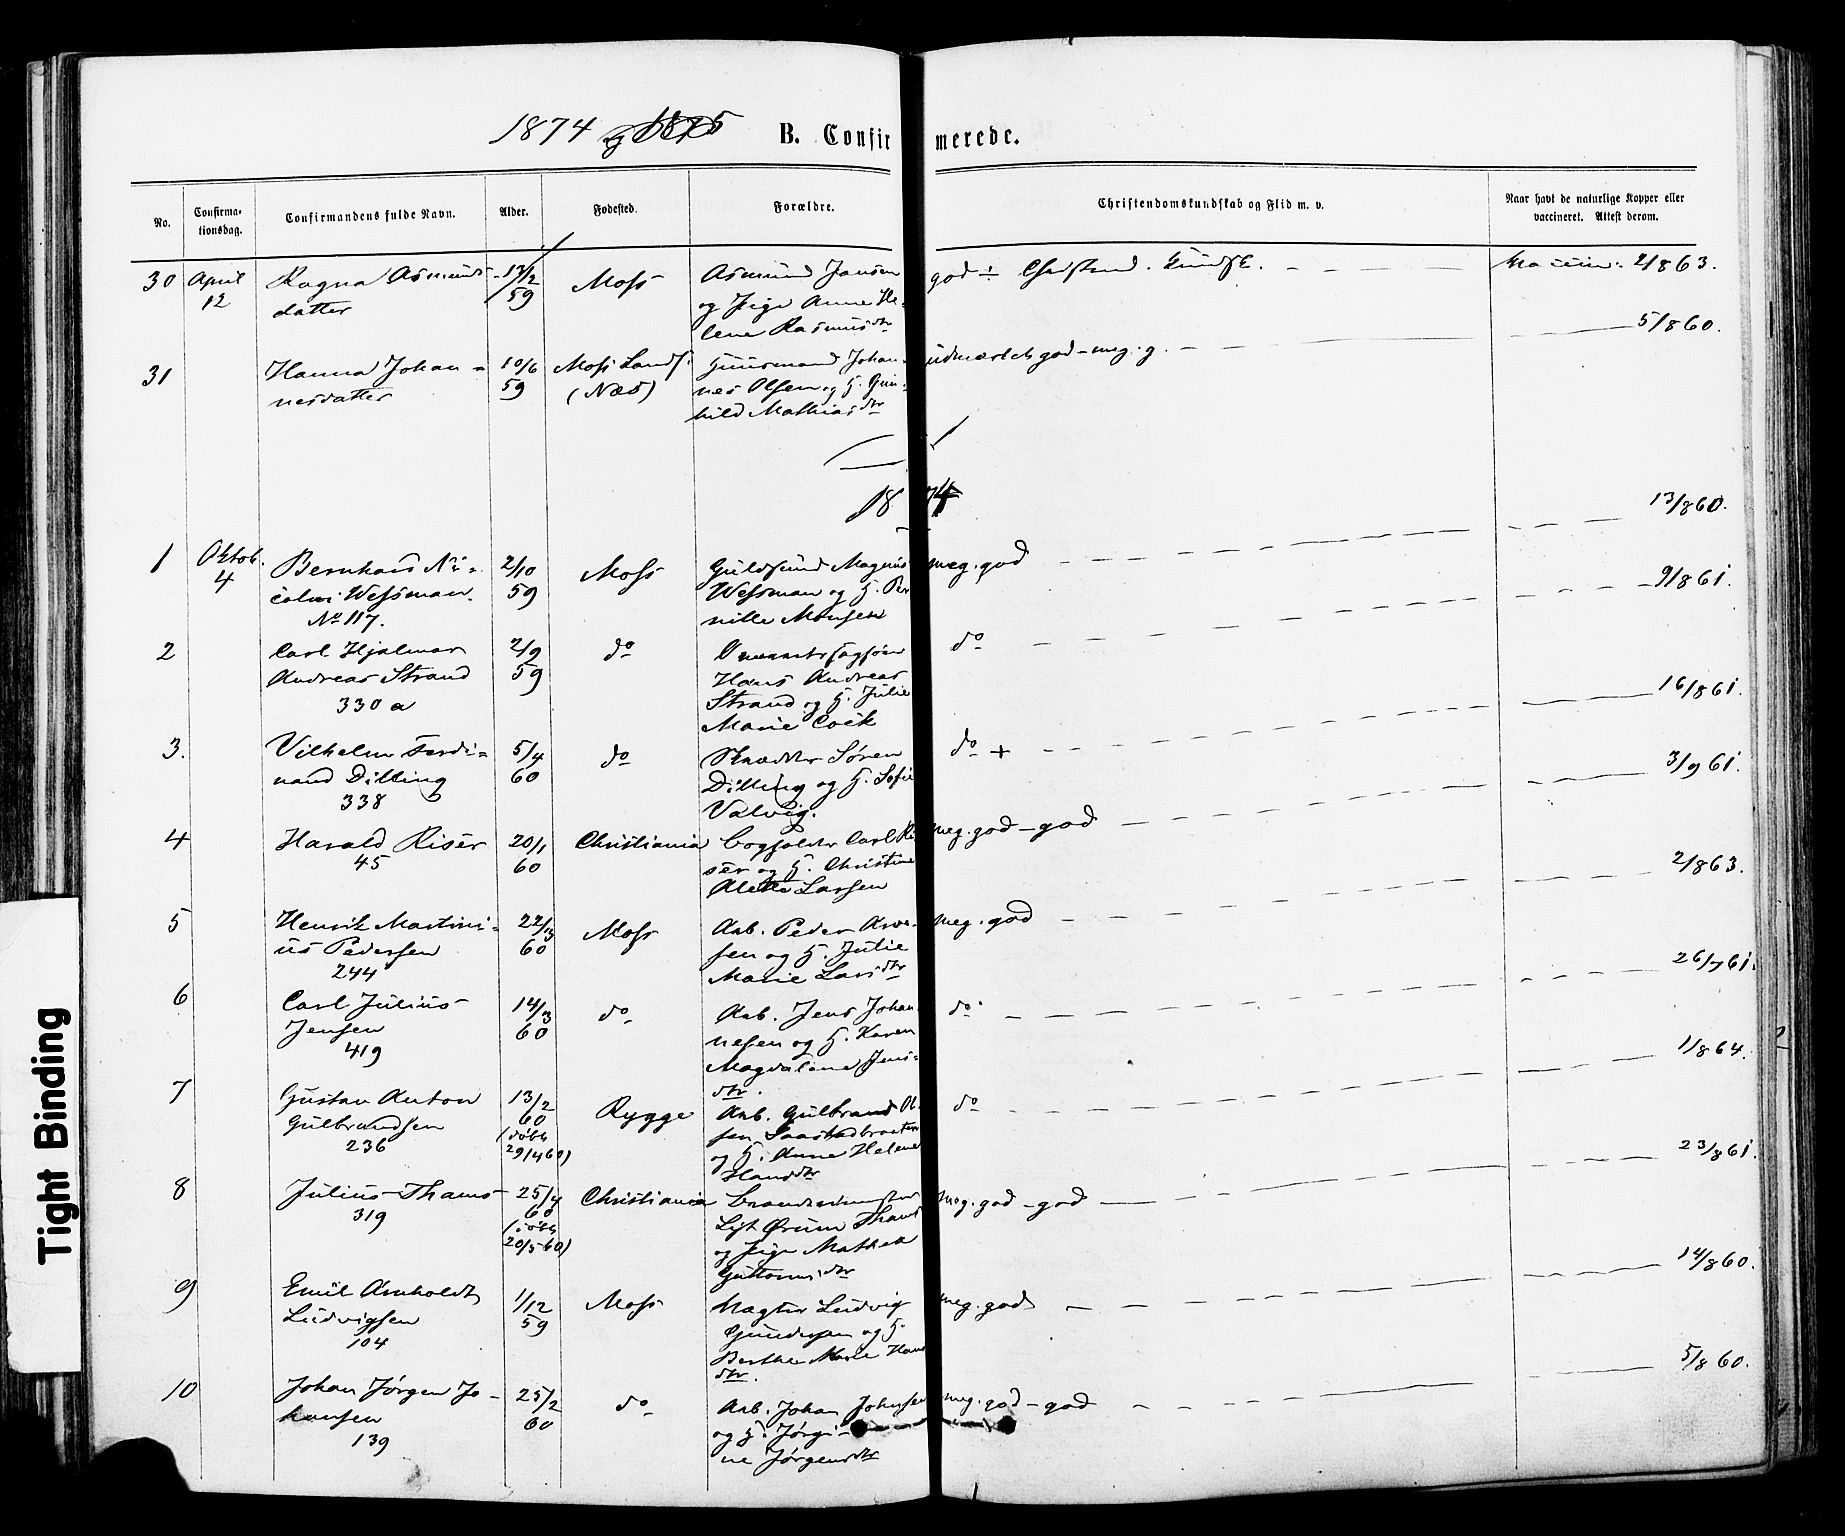 1874 og 1875
B. Confirmerede.
No.
Confirma-
tionsdag.
Confirmandens fulde Navn.
Alder.
Fødested.
Forældre.
Christendomskundskab og Flid m. v.
Naar havt de naturlige Kopper eller
vaccineret. Attest derom.
30 April 12
Ragna Asmunds-
datter
13/2
59
Moss
Asmund Jansen
og Pige Anne He-
lene Rasmusdtr
god ÷ Christend. Kundsk.
2/8 63.
31
Hanna Johan-
nesdatter
10/6
59
Moss Lands.
(Næs)
Huusmand Johan-
nes Olsen og H. Gun-
hild Mathiasdtr
udmærket god - meg. g.
5/8 60.
1874
1 Oktob. 4
Bernhard Ni-
colai Wessman.
No 117.
2/10
59
Moss
Guldsmed Magnus
Wessman og H. Per
nille Monsen
meg. god
13/8 60.
2
Carl Hjalmar
Andreas Strand
330 a
2/9
59
do
Hans Andreas
Strand og H. Julie
Marie Cock
do
9/8 61.
3.
Vilhelm Ferdi-
nand Dilling
338
5/4
60
do
Skrædder Søren
Dilling og H. Sofie
Valvig.
do +
16/8 61.
4
Harald Riser
45
20/1
60
Christiania
Bogholder Carl Ri
ser og H. Christine
Alette Larsen
meg. god - god
3/9 61.
5
Henrik Martini-
us Pedersen
244
22/3
60
Moss
Arb. Peder Arve-
sen og H. Julie
Marie Larsdtr
meg. god
2/8 63.
6
Carl Julius
Jensen
419
14/3
60
do
Arb. Jens Johan
nesen og H. Karen
Magdalene Jens-
dtr.
do
26/7 61.
7
Gustav Anton
Gulbrandsen
236
13/2
60
(døbt
29/4 60)
Rygge
Arb. Gulbrand Ol-
sen Saastadbraaten
og H. Anne Helene
Hansdtr
do
1/8 64.
8
Julius Thams
319
25/4
60
(døbt
20/5 60)
Christiania
Brandmester
Ørum Thams
og Pige Mathea
Guttormsdtr
meg. god - god
23/8 61.
9
Emil Arnholdt
Ludvigsen
104
1/12
59
Moss
Vægter Ludvig
Gundersen og H.
Berthe Marie Hans
dtr.
meg. god
14/8 60.
10
Johan Jørgen Jo-
hansen
139
25/2
60
do
Arb. Johan Johnsen
og H. Jørgi-
ne Jørgensdtr
meg. god - god
5/8 60.
Tight Binding